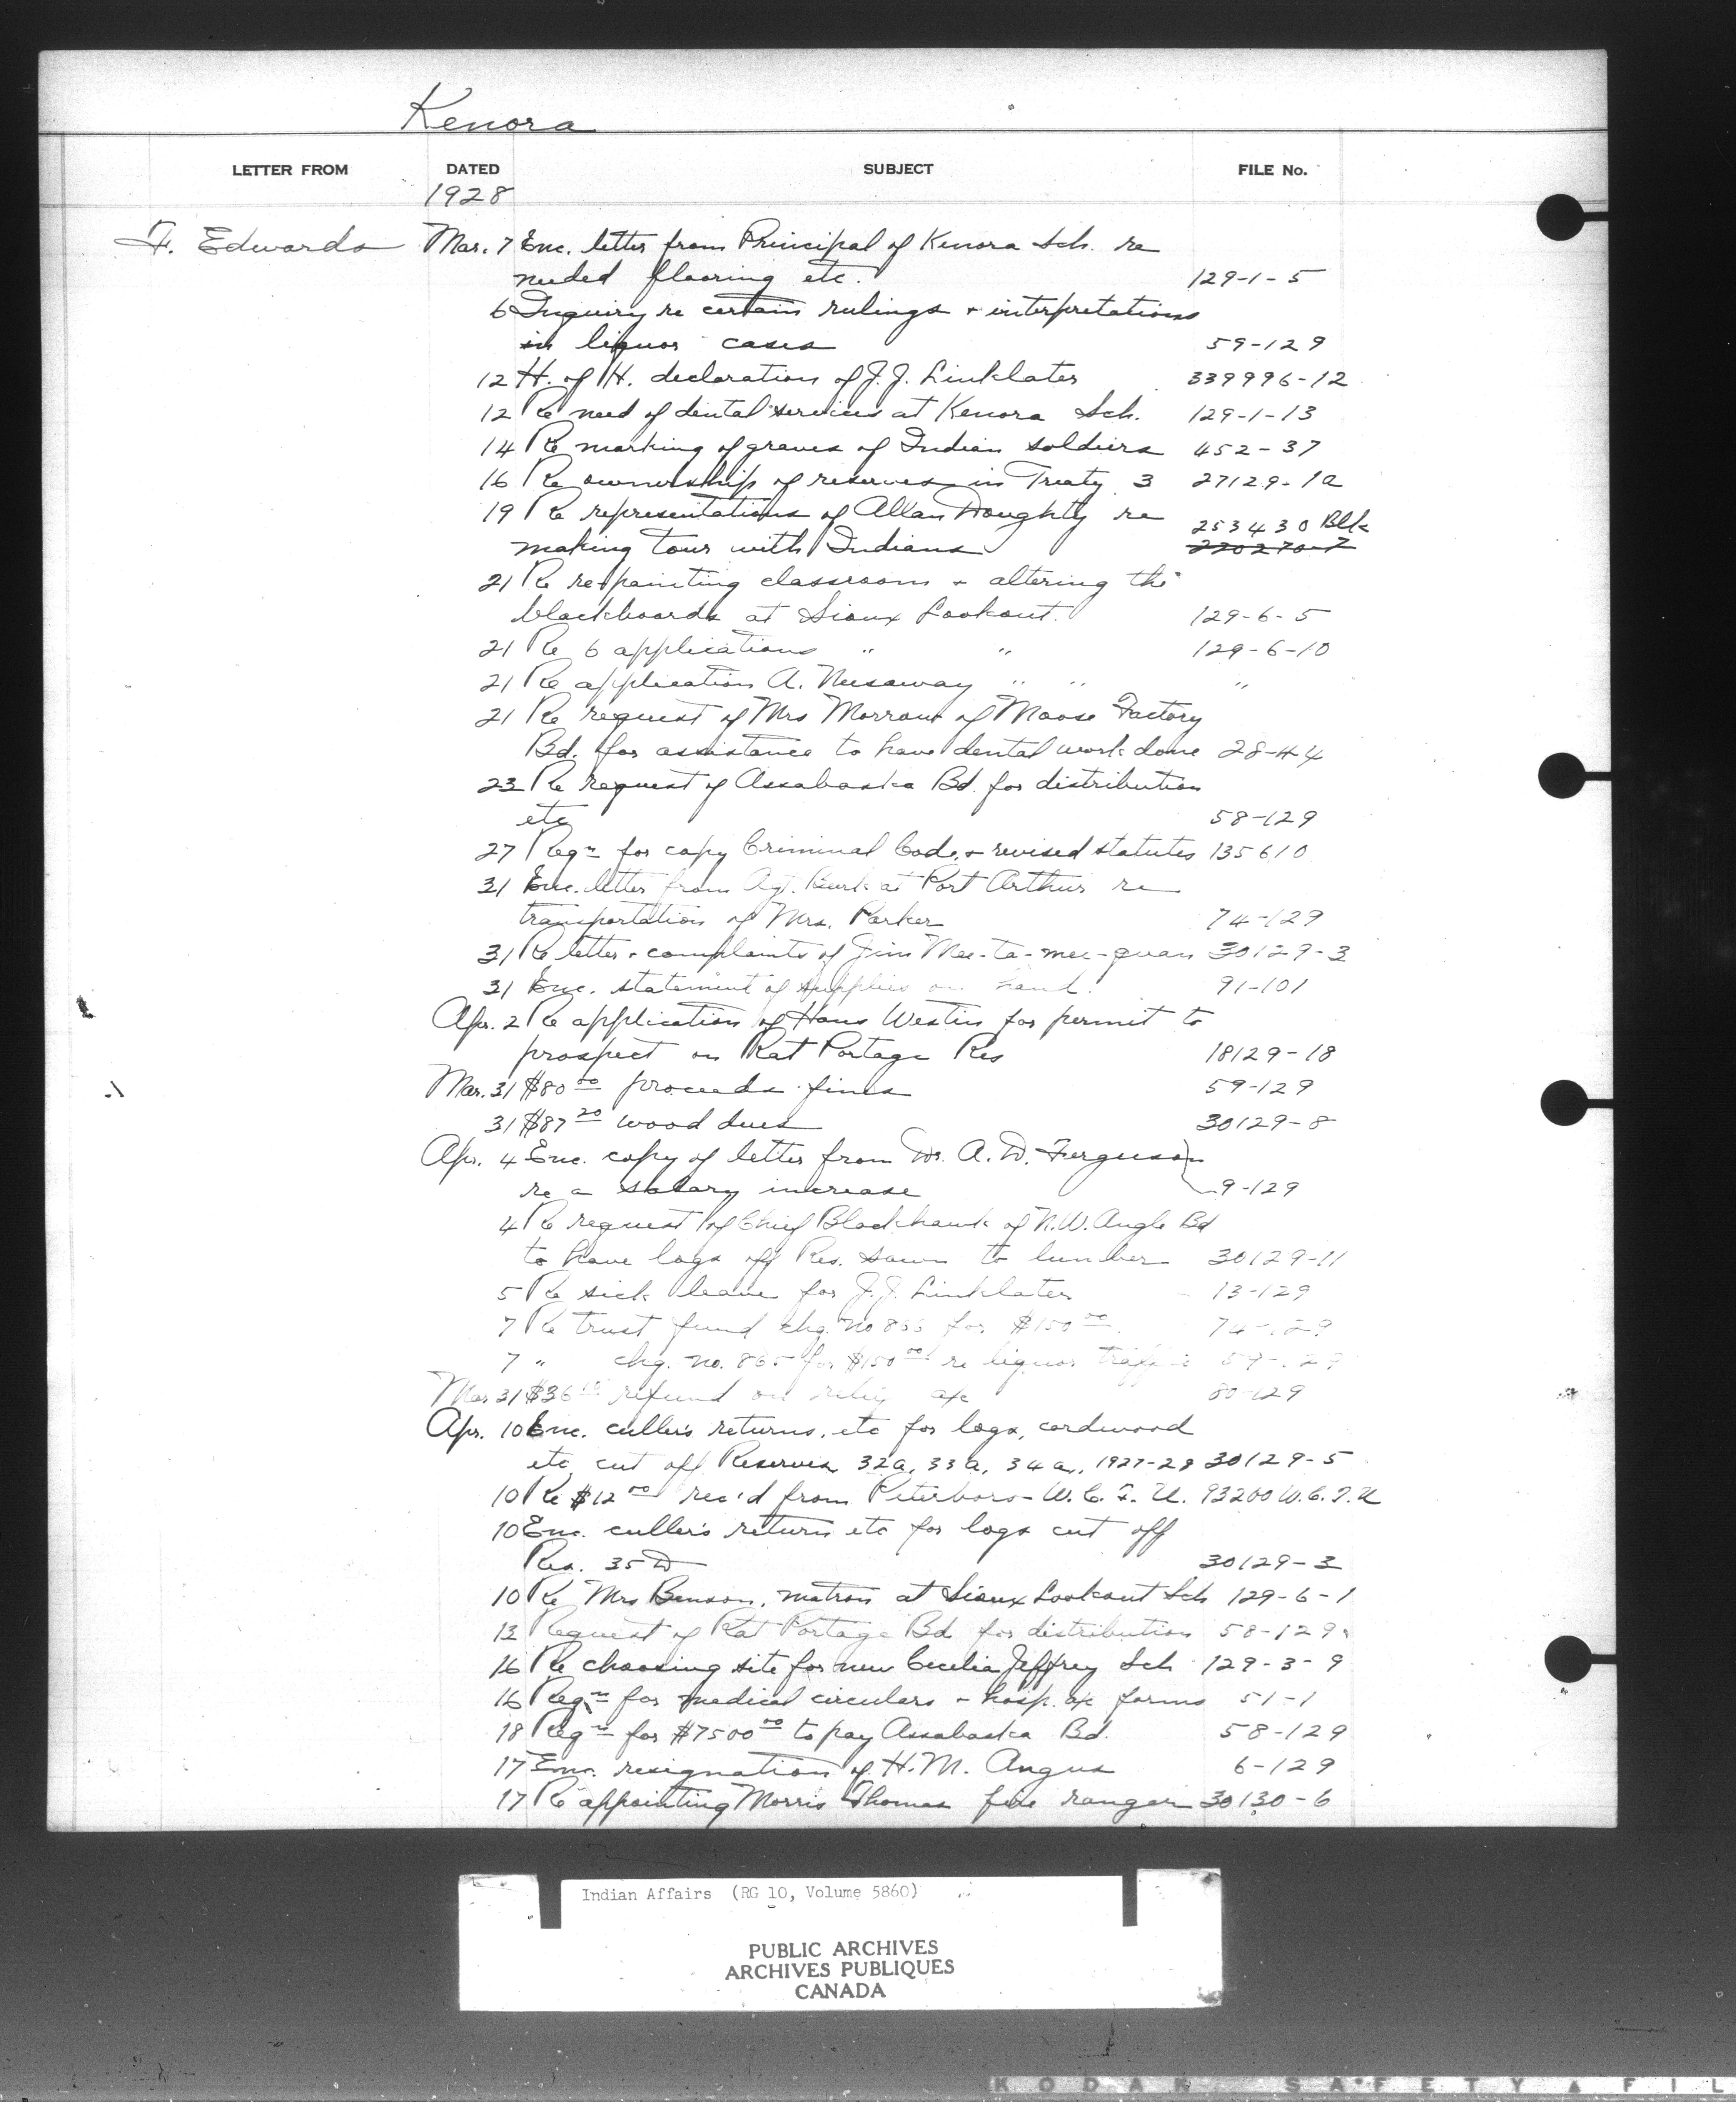 Kenora
LETTER FROM DATED SUBJECT FILE No.
1928
F. Edwards Mar. 7 Enc. letter from Principal of Kenora Sch. re
needed flooring etc. 129-1-5
6 Inquiry re certain rulings + interpretations
in liquor cases 59-129
12 H. of H. declaration of J. J. Linklater 339996-12
12 Re need of dental services at Kenora Sch. 129-1-13
14 Re marking of graves of Indian soldiers 452-37
16 Re ownership of reserves in Treaty 3 27129-1a
19 Re representations of Allan Doughty re 253430 Blk
making tour with Indians 220270-7
21 Re re-painting classroom + altering the
blackboards at Sioux Lookout. 129-6-5
21 Re 6 applications " " 129-6-10
21 Re application A. Neesaway " " "
21 Re request of Mrs Morrow of Moose Factory
Bd. for assistance to have dental work done 28-44
23 Re request of Assabaska Bd. for distribution
etc 58-129
27 Reqn for copy Criminal Code + revised statutes 135610
31 Enc. letter from Agt. Burk at Port Arthur re
transportation of Mrs. Parker 74-129
31 Re letter + complaints of Jim Mee-ta-mee-quan 30129-3
31 Enc. statement of supplies on hand. 91-101
Apr. 2 Re application of Hans Westin for permit to
prospect on Rat Portage Res 18129-18
Mar. 31 $80 00 proceeds fines 59-129
31 $87 20 wood dues 30129-8
Apr. 4 Enc. copy of letter from Dr. A. D. Ferguson
re a salary increase 9-129
4 Re request of Chief Blackhawk of N.W. Angle Bd
to have logs off Res. sawn to lumber 30129-11
5 Re sick leave for J. J. Linklater 13-129
7 Re trust fund chq. no 866 for $150 00 74-129
7 " chq. no. 865 for $150 00 re liquor traffic 59-129
Mar. 31 $36 refund on relief a/c 80-129
Apr. 10 Enc. culler's returns, etc for logs, cordwood
etc, cut off Reserves 32a, 33a, 34a, 1927-28 30129-5
10 Re $12 00 rec'd from Peterboro W. C. T. U. 93200 W.C.T.U
10 Enc. culler's return etc for logs cut off
Res. 35 D 30129-3
10 Re Mrs Benson, matron at Sioux Lookout Sch 129-6-1
13 Request of Rat Portage Bd. for distribution 58-129
16 Re choosing site for new Cecelia Jeffrey Sch 129-3-9
16 Reqn for medical circulars + hosp. a/c forms 51-1
18 Reqn for $7500 00 to pay Assabaska Bd. 58-129
17 Enc. resignation of H. M. Angus 6-129
17 Re appointing Morris Thomas fire ranger 30130-6
Indian Affairs (RG 10, Volume 5860)
PUBLIC ARCHIVES
ARCHIVES PUBLIQUES
CANADA
KODAK SAFETY FIL